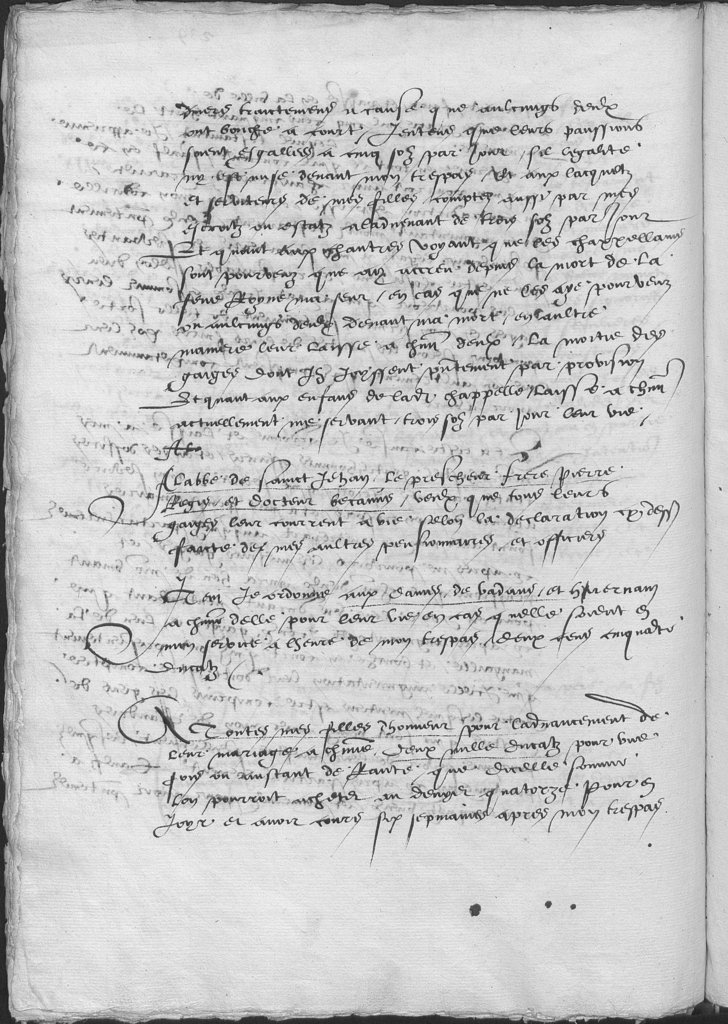 divers traictemens a cause que aulcungs deulx
ont bouche a court / Jentens que leurs panssions
soient esgallees a cinq solz par jour / sil legalite
ny est mise devant mon trespas / Et aux lacquetz
et serviteurs de mes filles comptez aussi par mes
escroez ou estatz aladvenant de trois solz par jour
Et quant aux chantres voyant que les chappellains
sont pourveuz que ay accreu depuis la mort de la
feue Royne ma seur / en cas que ne les aye pourveuz
ou aulcungs deulx devant ma mort / en laultre
maniere leur laisse a chun deulx / La moitie des
gaiges dont ilz joyssent pntement par provision
Et quant aux enfans de ladt chappelle / Laisse a chun
actuellement me servant / trois solz par jour leur vie /
A
Labbe de sainct Jehan / le prescheur frere pierre
Regis et docteur / veulx que tous leurs
gaiges leur courrent a vie selon la declaration cy dess
faicte des mes aultres pensionnaires et officiers
Item Je ordonne aux dames de vadans et
a chune delle pour leur vie en cas quelle soient en
mon service a lheure de mon trespas / deux cens cinquate
ducatz /
A Toutes mes filles dhonneur pour ladvancement de
leur mariage a chune deux mille ducatz pour une
fois ou austant de Rante que dicelle somme
lon pourroit achetter au denyer quatorze pour en
joyr et avoir cours six sepmaines apres mon trespas